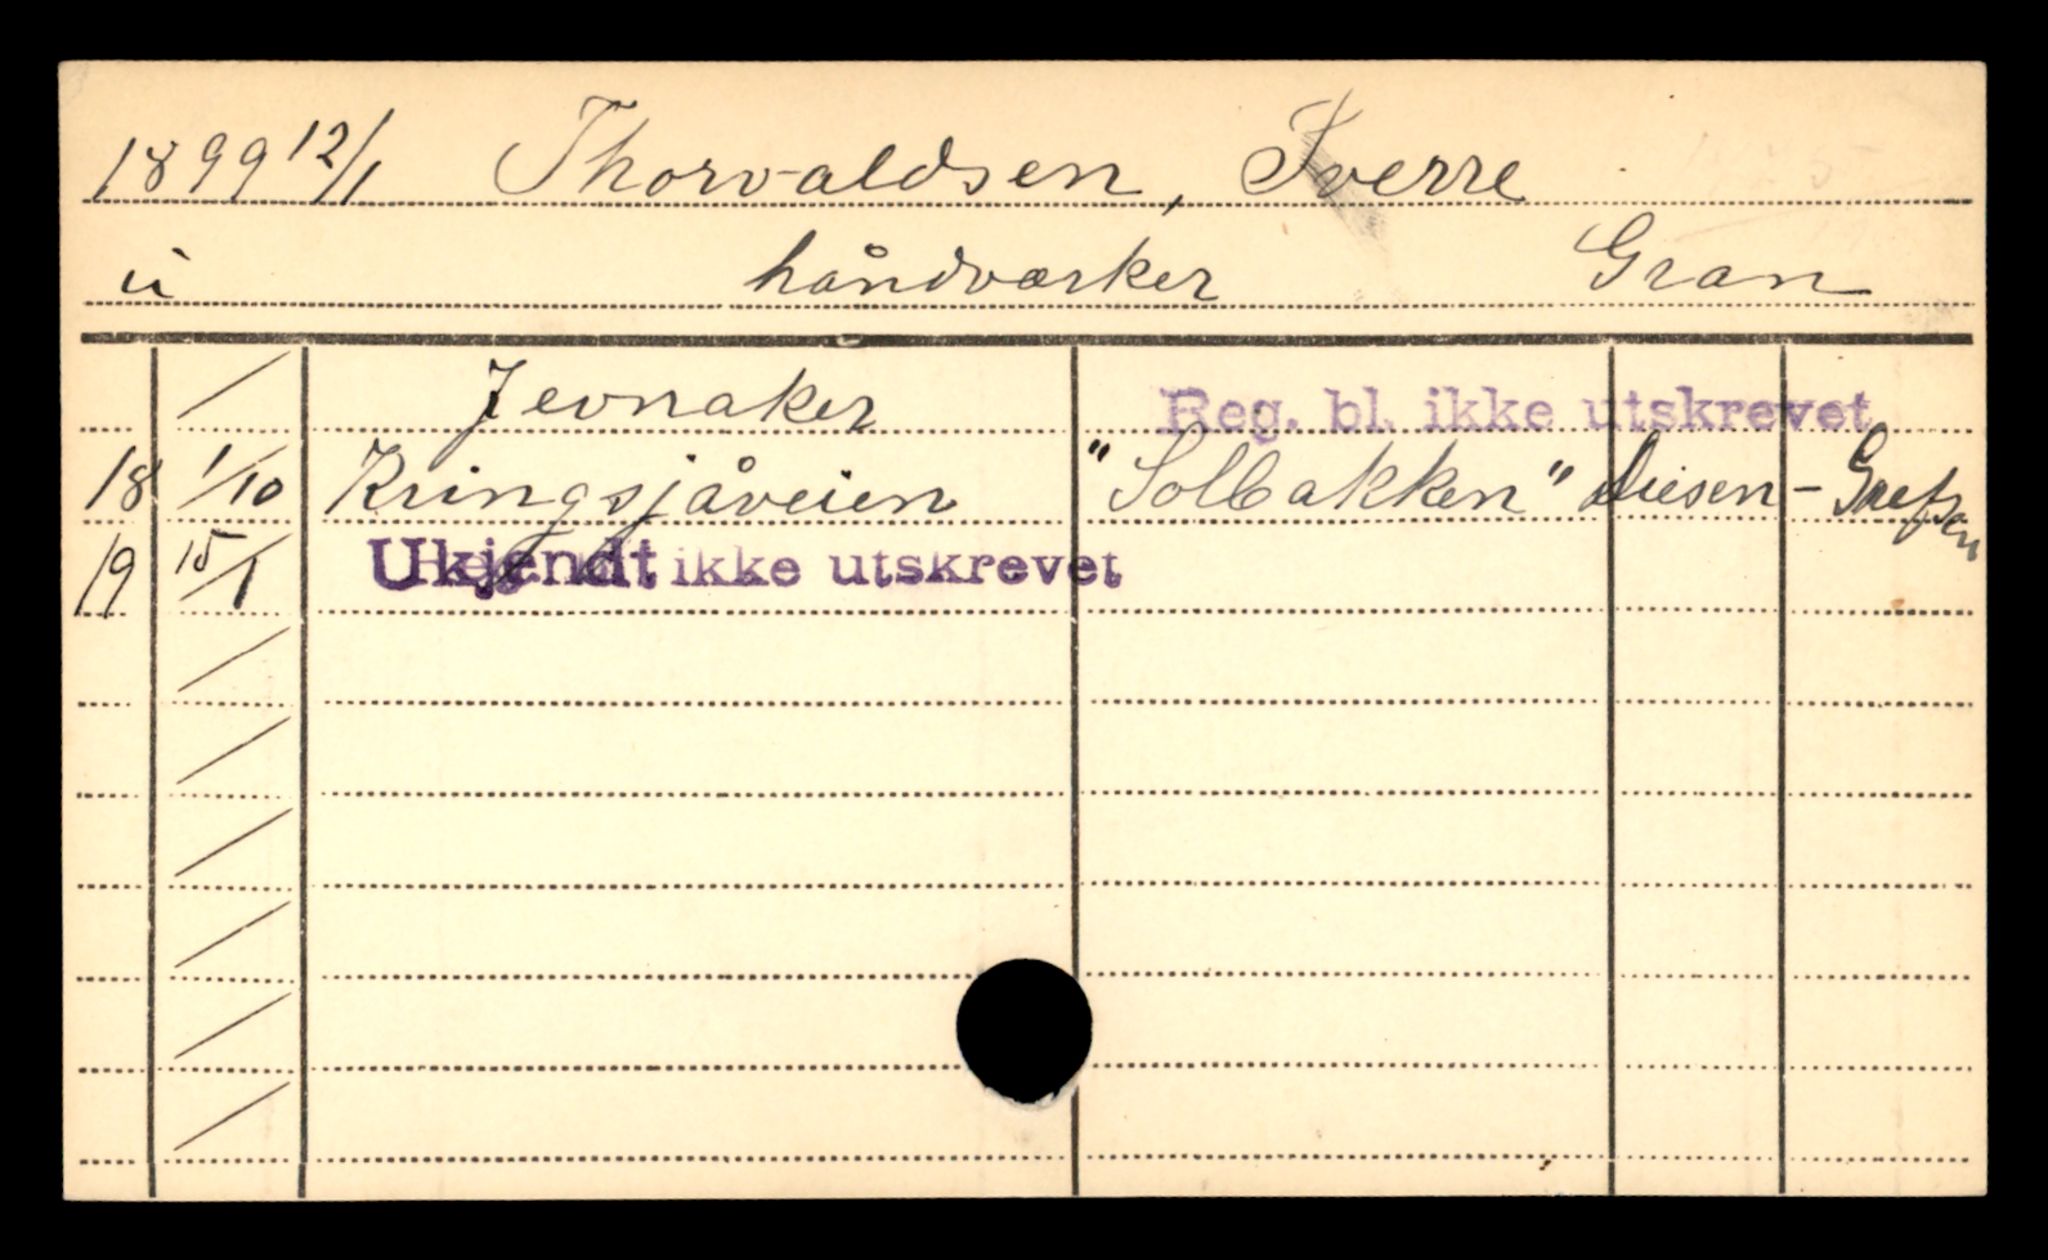 1899 12/1 Thorvaldsen, Sverre
ú håndværker Gran
Jevnaker Reg. bl. ikke utskrevet
18 1/10 Kringsjåveien "Solbakken" Disen - Grefsen
19 15/1 Ukjendt ikke utskrevet